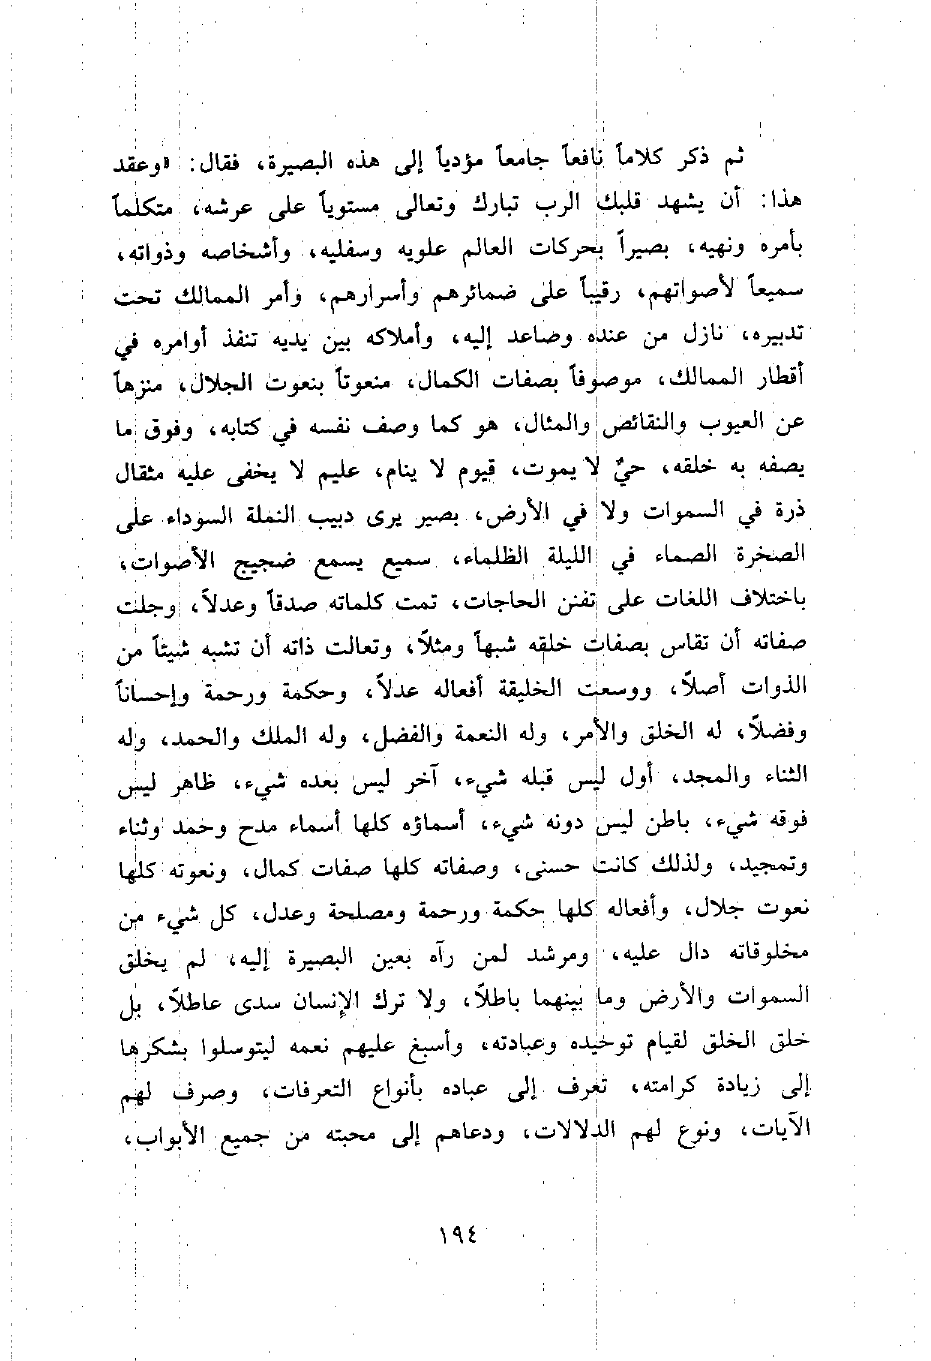 ثم ذكر كلاماً نافعاً جامعاً مؤدياً إلى هذه البصيرة، فقال: «وعقد
هذا: أن يشهد قلبك الرب تبارك وتعالى مستوياً على عرشه، متكلماً
بأمره ونهيه، بصيراً بحركات العالم علويه وسفليه، وأشخاصه وذواته،
سميعاً لأصواتهم، رقيباً على ضمائرهم وأسرارهم، وأمر الممالك تحت
تدبيره، نازل من عنده وصاعد إليه، وأملاكه بين يديه تنفذ أوامره في
أقطار الممالك، موصوفاً بصفات الكمال، منعوتاً بنعوت الجلال، منزهاً
عن العيوب والنقائص والمثال، هو كما وصف نفسه في كتابه، وفوق ما
يصفه به خلقه، حيٌ لا يموت، قيوم لا ينام، عليم لا يخفى عليه مثقال
ذرة في السموات ولا في الأرض، بصير يرى دبيب النملة السوداء على
الصخرة الصماء في الليلة الظلماء، سميع يسمع ضجيج الأصوات،
باختلاف اللغات على تفنن الحاجات، تمت كلماته صدقاً وعدلاً، وجلت
صفاته أن تقاس بصفات خلقه شبهاً ومثلاً، وتعالت ذاته أن تشبه شيئاً من
الذوات أصلاً، ووسعت الخليقة أفعاله عدلاً، وحكمة ورحمة وإحساناً
وفضلاً، له الخلق والأمر، وله النعمة والفضل، وله الملك والحمد، وله
الثناء والمجد، أول ليس قبله شيء، آخر ليس بعده شيء، ظاهر ليس
فوقه شيء، باطن ليس دونه شيء، أسماؤه كلها أسماء مدح وحمد وثناء
وتمجيد، ولذلك كانت حسنى، وصفاته كلها صفات كمال، ونعوته كلها
نعوت جلال، وأفعاله كلها حكمة ورحمة ومصلحة وعدل، كل شيء من
مخلوقاته دال عليه، ومرشد لمن رآه بعين البصيرة إليه، لم يخلق
السموات والأرض وما بينهما باطلاً، ولا ترك الإنسان سدى عاطلاً، بل
خلق الخلق لقيام توحيده وعبادته، وأسبغ عليهم نعمه ليتوسلوا بشكرها
إلى زيادة كرامته، تعرف إلى عباده بأنواع التعرفات، وصرف لهم
الآيات، ونوع لهم الدلالات، ودعاهم إلى محبته من جميع الأبواب،
١٩٤